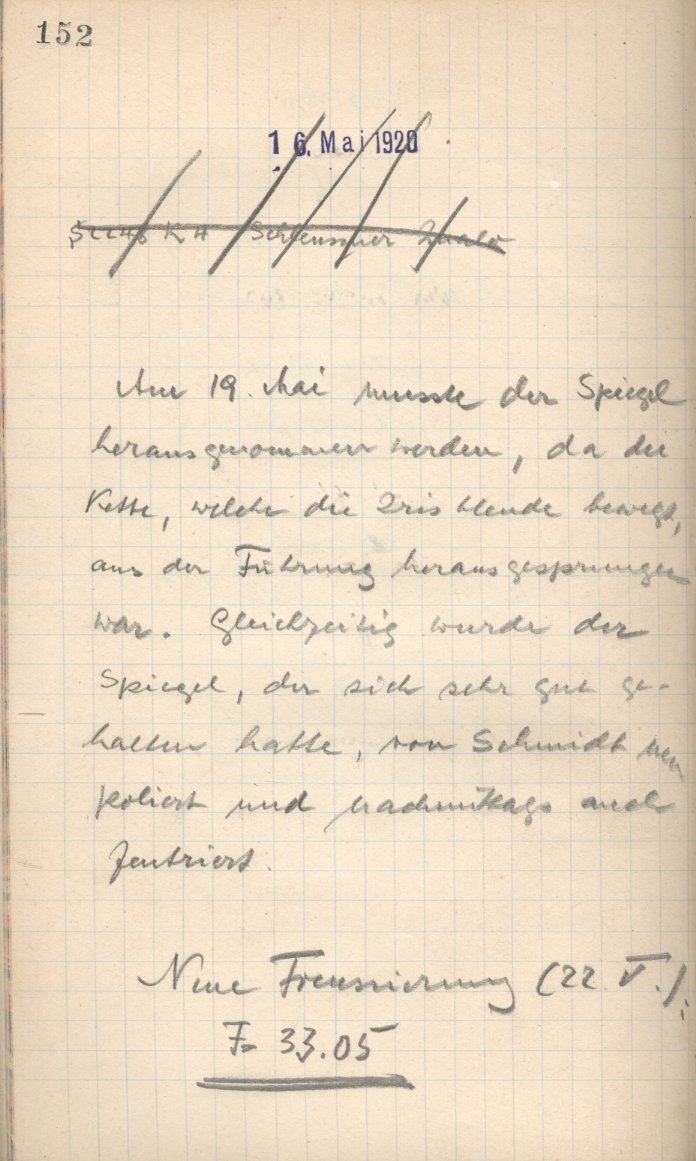 152
16. Mai 1920
K4 Schleussner
Am 19. Mai musste der Spiegel
herausgenommen werden, da die
Kette, welche die Irisblende bewegt,
aus der Führung herausgesprungen
war. Gleichzeitig wurde der
Spiegel, der sich sehr gut ge-
halten hatte, von Schmidt neu
poliert und nachmittags auch
zentriert.
Neue Focussierung (22 V.):
F= 33.05